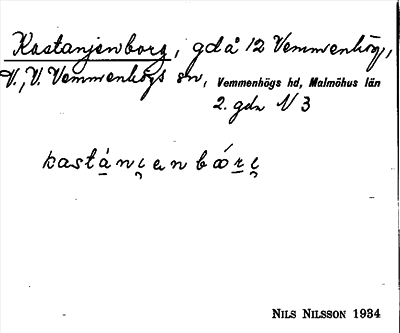 Kastanjenborg, gd å 12 Vemmenhög,
V., V. Vemmenhögs sn, Vemmenhögs hd, Malmöhus län
2. gdn N 3
kastánịenbǽrị
NILS NILSSON 1934